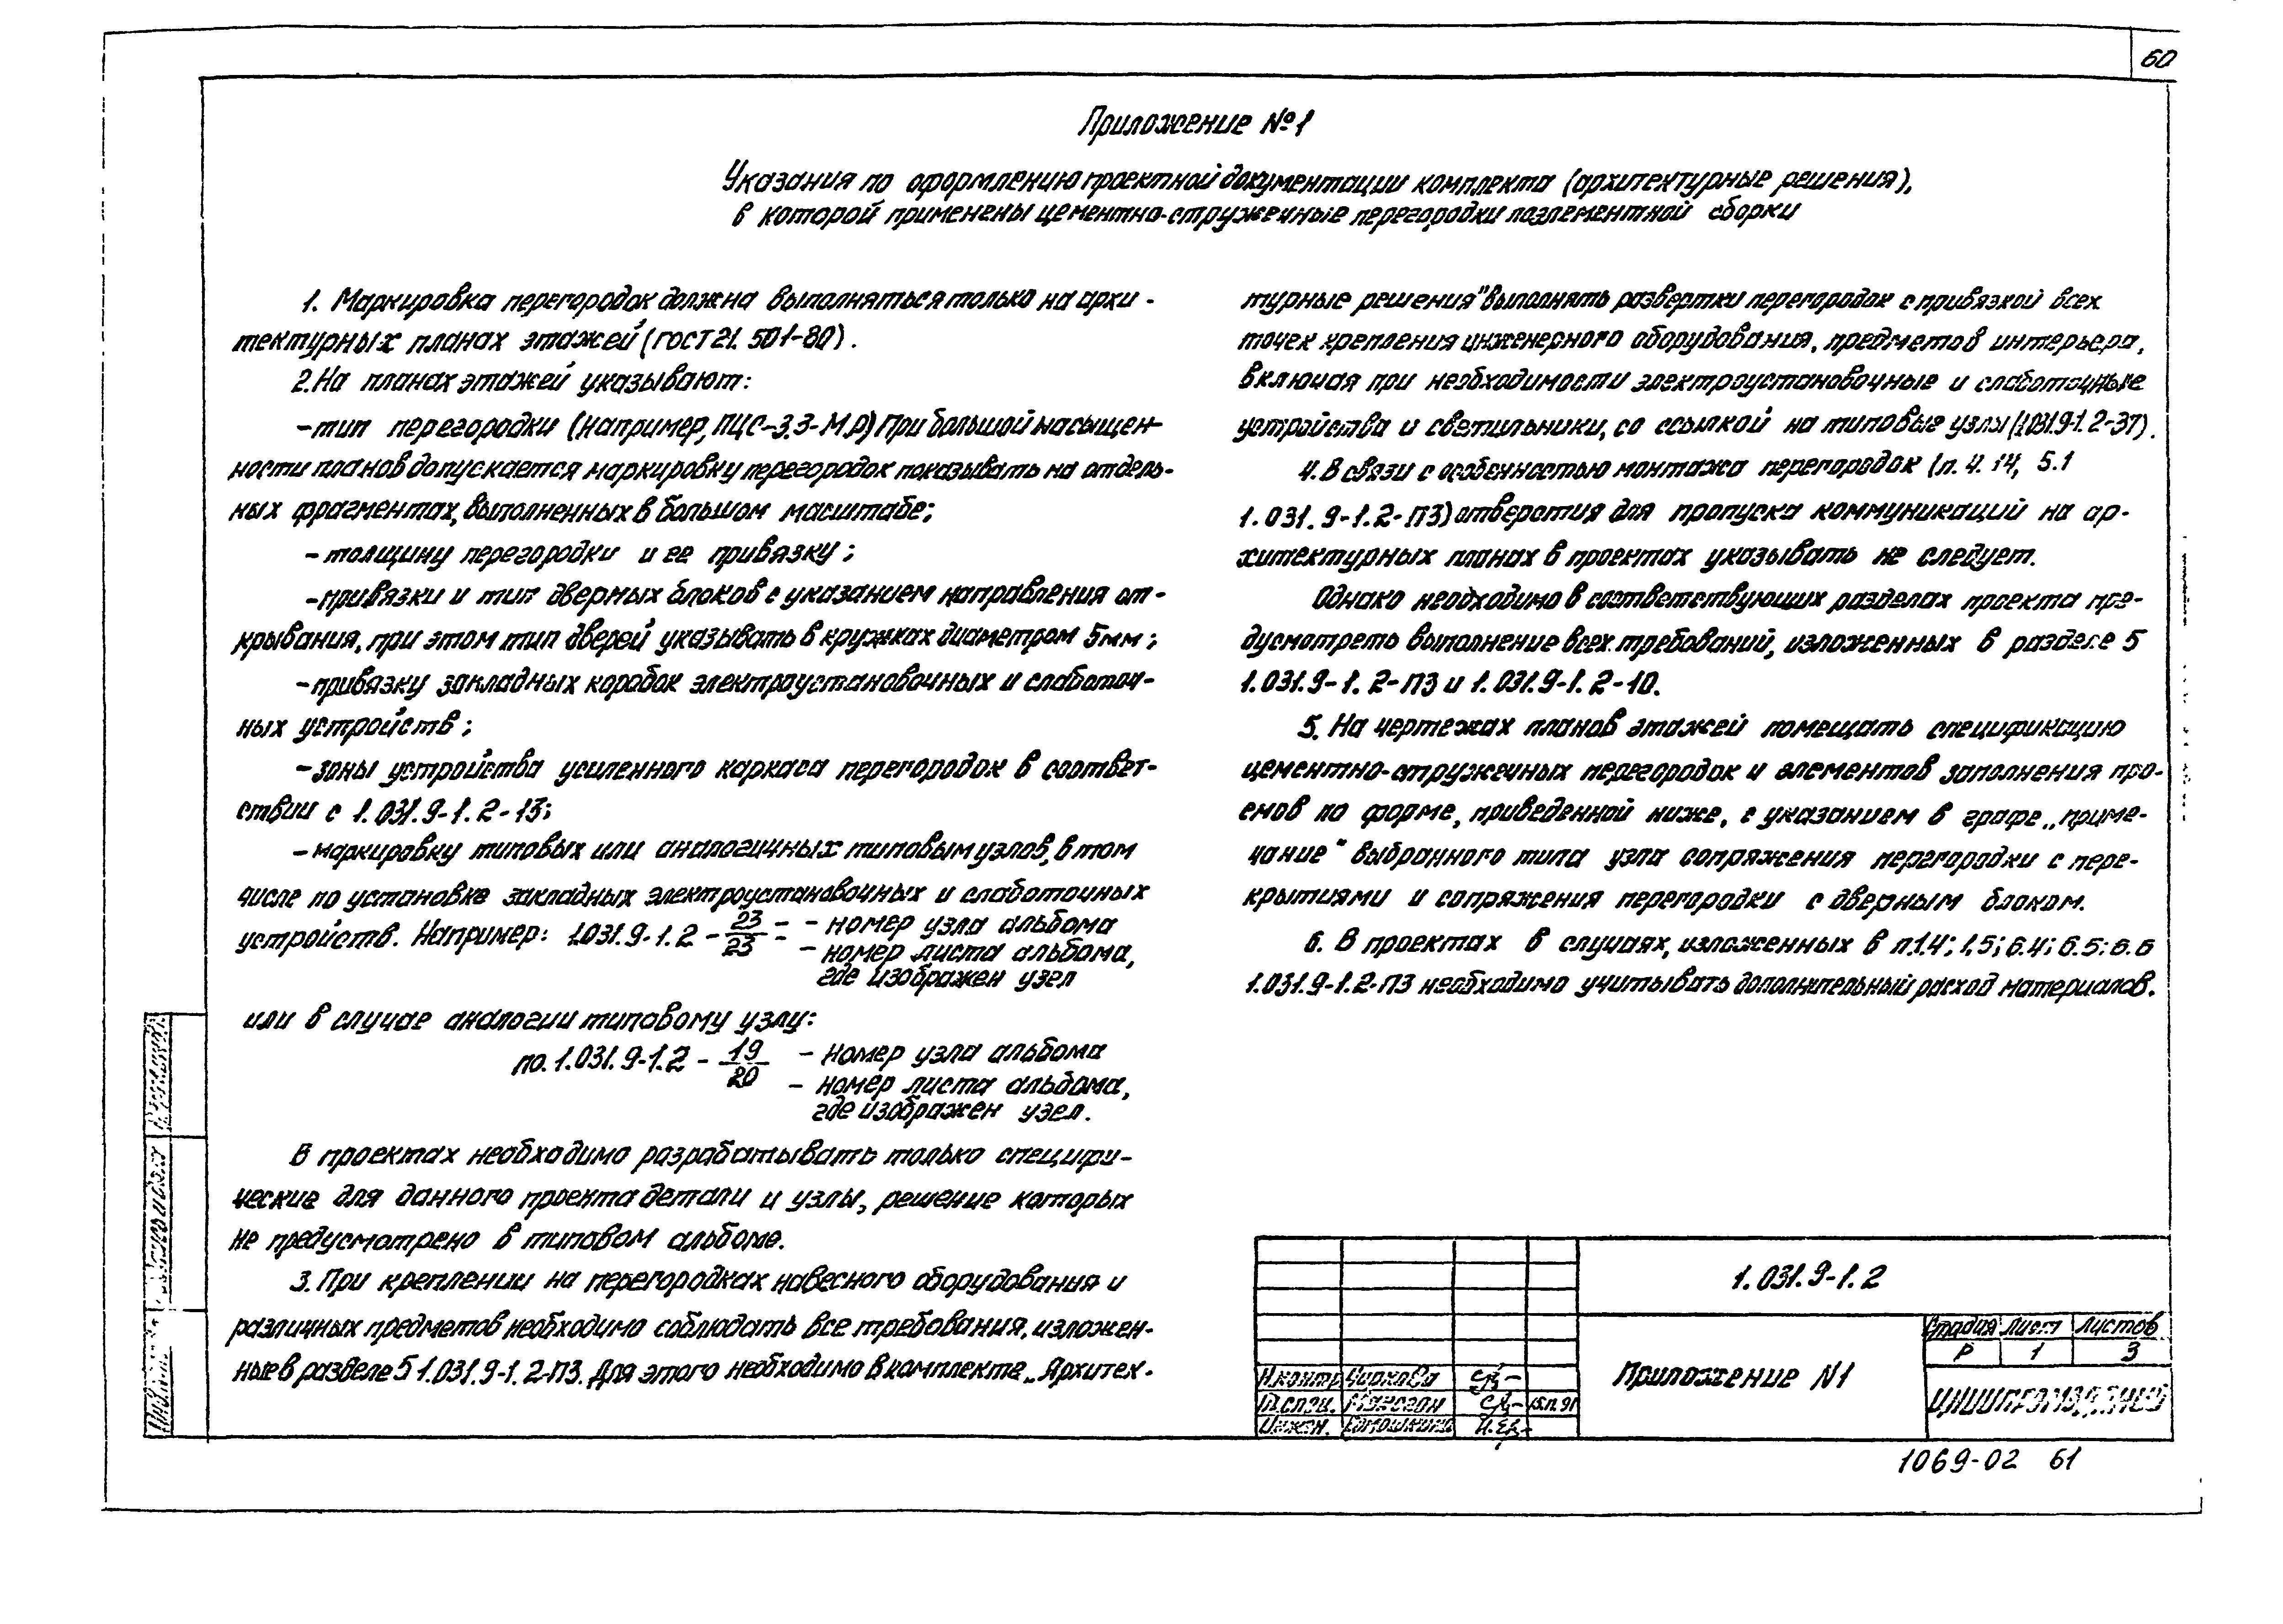 60
Приложение №1
Указания по оформлению проектной документации комплекта (архитектурные решения),
в которой применены цементно-стружечные перегородки поэлементной сборки
1. Маркировка перегородок должна выполняться только на архи-
тектурных планах этажей (ГОСТ 21.501-80).
2. На планах этажей указывают:
- тип перегородки (например, ПЦС-3.3-М.Р) При большой насыщен-
ности планов допускается маркировку перегородок показывать на отдель-
ных фрагментах, выполненных в большом масштабе;
- толщину перегородки и ее привязку;
- привязки и тип дверных блоков с указанием направления от-
крывания, при этом тип дверей указывать в кружках диаметром 5мм;
- привязку закладных коробок электроустановочных и слаботоч-
ных устройств;
- зоны устройства усиленного каркаса перегородок в соответ-
ствии с 1.031.9-1.2-13;
- маркировку типовых или аналогичных типовым узлов, в том
числе по установке закладных электроустановочных и слаботочных
устройств. Например: 1.031.9-1.2 - 23 - - номер узла альбома
23 - - номер листа альбома,
где изображен узел
или в случае аналогии типовому узлу:
по. 1.031.9-1.2 - 19 - номер узла альбома
20 - номер листа альбома,
где изображен узел.
В проектах необходимо разрабатывать только специфи-
ческие для данного проекта детали и узлы, решение которых
не предусмотрено в типовом альбоме.
3. При креплении на перегородках навесного оборудования и
различных предметов необходимо соблюдать все требования, изложен-
ные в разделе 5 1.031.9-1.2-ПЗ. Для этого необходимо в комплекте „Архитек-
турные решения" выполнять развертки перегородок с привязкой всех
точек крепления инженерного оборудования, предметов интерьера,
включая при необходимости электроустановочные и слаботочные
устройства и светильники, со ссылкой на типовые узлы (1.031.9-1.2-37).
4. В связи с особенностью монтажа перегородок (п. 4.14, 5.1
1.031.9-1.2-ПЗ) отверстия для пропуска коммуникаций на ар-
хитектурных планах в проектах указывать не следует.
Однако необходимо в соответствующих разделах проекта пре-
дусмотреть выполнение всех требований, изложенных в разделе 5
1.031.9-1.2-ПЗ и 1.031.9-1.2-10.
5. На чертежах планов этажей помещать спецификацию
цементно-стружечных перегородок и элементов заполнения про-
емов по форме, приведенной ниже, с указанием в графе „приме-
чание" выбранного типа узла сопряжения перегородки с пере-
крытиями и сопряжения перегородки с дверным блоком.
6. В проектах в случаях, изложенных в п.1.4; 1.5; 6.4; 6.5; 6.6
1.031.9-1.2-ПЗ необходимо учитывать дополнительный расход материалов.
1.031.9-1.2
Приложение №1
Стадия Лист Листов
Р 1 3
ЦНИИПРОМЗДАНИЙ
Н.контр. Чиркова
Гл.спец. Максган 15.11.91
Инжен.
1069-02 61